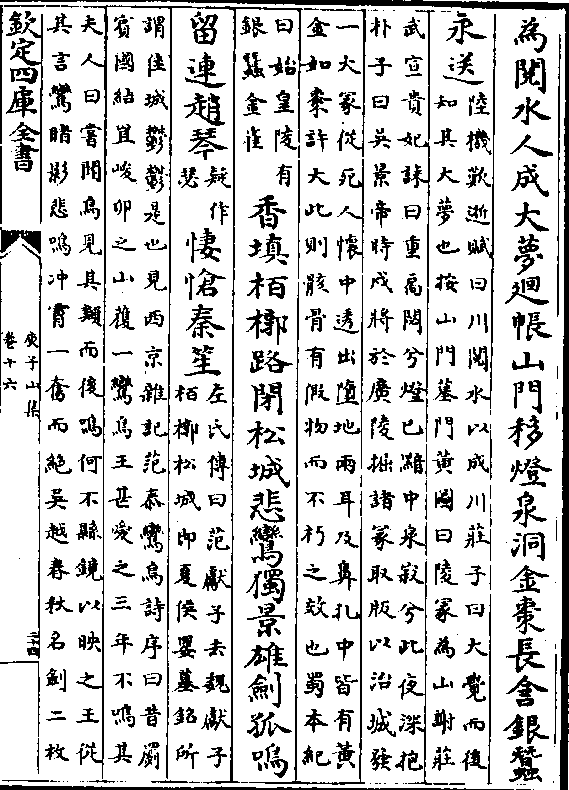 為閱水人成大夢廻帳山門移燈泉洞金棗長含銀蠶
永送
陸機歎逝賦曰川閱水以成川莊子曰大覺而後
知其大夢也按山門墓門黄圖曰陵冢為山謝莊
武宣貴妃誄曰重扄閟兮燈已黯中泉寂兮此夜深抱
朴子曰吳景帝時戍將於廣陵掘諸冢取版以治城發
一大冢從死人懷中透出墮地兩耳及鼻孔中皆有黄
金如棗許大此則骸骨有假物而不朽之效也蜀本紀
曰始皇陵有
銀蠶金雀
香填栢槨路閉松城悲鸞獨景雄劍孤鳴
留連趙琴
疑作
瑟
悽愴秦笙
左氏傳曰范獻子去魏獻子
栢槨松城即夏侯嬰墓銘所
謂佳城鬱鬱是也見西京雜記范泰鸞鳥詩序曰昔罽
賓國結罝峻卯之山獲一鸞鳥王甚愛之三年不鳴其
夫人曰嘗聞鳥見其類而後鳴何不懸鏡以映之王從
其言鸞睹影悲鳴冲霄一奮而絶吳越春秋名劍二枚
欽定四庫全書
庾子山集
卷十六
三十四